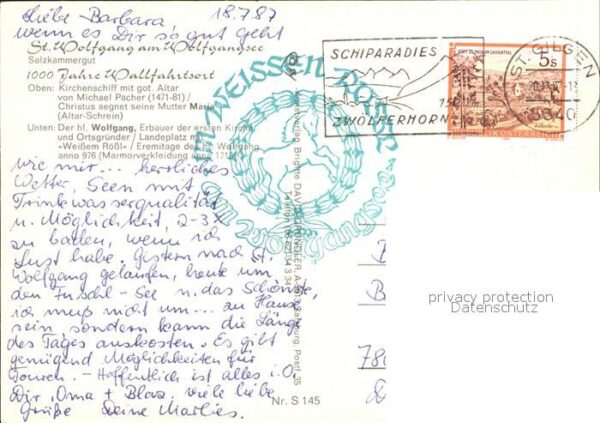 Liebe Barbara 18.7.87
wenn es Dir so gut geht
St. Wolfgang am Wolfgangsee
Salzkammergut
1000 Jahre Wallfahrtsort
Oben: Kirchenschiff mit got. Altar
von Michael Pacher (1471-81) /
Christus segnet seine Mutter Maria
(Altar-Schrein)
Unten: Der hl. Wolfgang, Erbauer der ersten Kirche
und Ortsgründer / Landeplatz mit
»Weißem Rößl« / Eremitage des hl. Wolfgang
anno 976 (Marmorverkleidung anno 1713)
wie mir... herrliches
Wetter, Seen mit
Trinkwasserqualität
u. Möglichkeit, 2-3x
zu baden, wenn ich
Lust habe. Gestern nach St.
Wolfgang gelaufen, heute um
den Fuschl-See u. das Schönste,
ich muß nicht um... zu Hause
sein sondern kann die Länge
des Tages auskosten. Es gibt
genügend Möglichkeiten für
Touren. - Hoffentlich ist alles i.O.
Dir, Oma + Blaz, viele liebe
Grüße Deine Marlies.
Nr. S 145
IM WEISSEN RÖSSL
am Wolfgangsee
SCHIPARADIES
ZWÖLFERHORN
5 S
ST. GILGEN
5340
B
78
D
privacy protection
Datenschutz